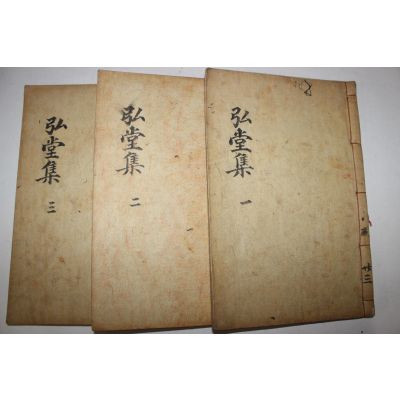 弘堂集
一
弘堂集
二
弘堂集
三